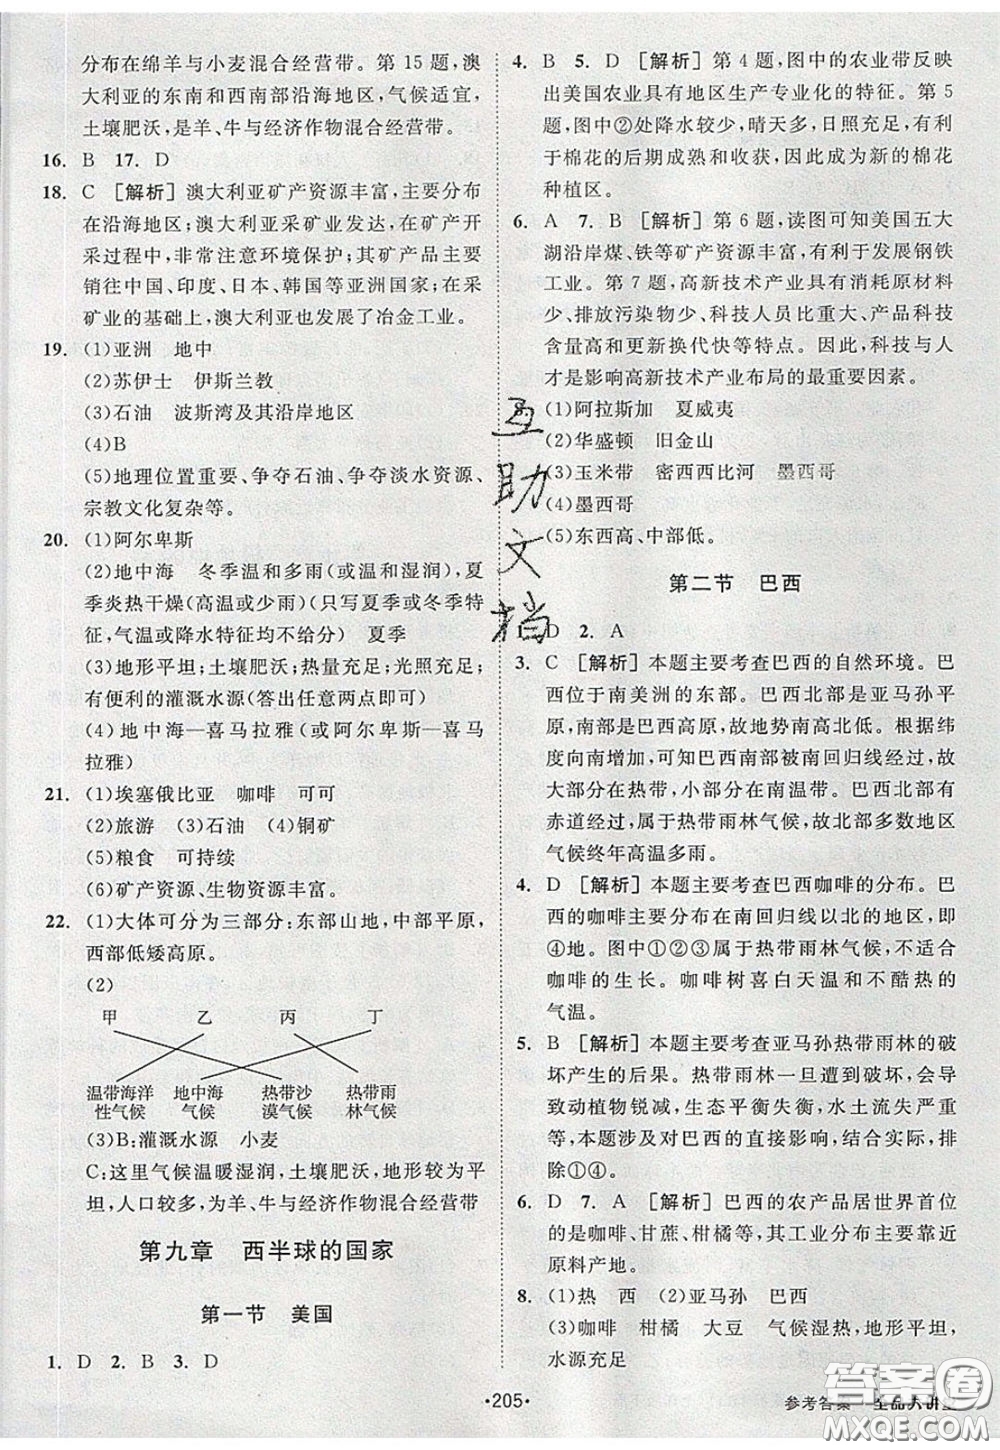 分布在绵羊与小麦混合经营带。第15题,澳
大利亚的东南和西南部沿海地区,气候适宜,
土壤肥沃,是羊、牛与经济作物混合经营带。
16. B 17. D
18. C [解析]澳大利亚矿产资源丰富,主要分布
在沿海地区;澳大利亚采矿业发达,在矿产开
采过程中,非常注意环境保护;其矿产品主要
销往中国、印度、日本、韩国等亚洲国家;在采
矿业的基础上,澳大利亚也发展了冶金工业。
19. (1)亚洲 地中
(2)苏伊士 伊斯兰教
(3)石油 波斯湾及其沿岸地区
(4)B
(5)地理位置重要、争夺石油、争夺淡水资源、
宗教文化复杂等。
20. (1)阿尔卑斯
(2)地中海 冬季温和多雨(或温和湿润),夏
季炎热干燥(高温少雨)(只写夏季或冬季特
征,气温或降水特征均不给分) 夏季
(3)地形平坦;土壤肥沃;热量充足;光照充足;
有便利的灌溉水源(答出任意两点即可)
(4)地中海—喜马拉雅(或阿尔卑斯—喜马
拉雅)
21. (1)埃塞俄比亚 咖啡 可可
(2)旅游 (3)石油 (4)铜矿
(5)粮食 可持续
(6)矿产资源、生物资源丰富。
22. (1)大体可分为三部分:东部山地,中部平原,
西部低矮高原。
(2)
甲 乙 丙 丁
温带海洋 地中海 热带沙 热带雨
性气候 气候 漠气候 林气候
(3)B:灌溉水源 小麦
C:这里气候温暖湿润,土壤肥沃,地形较为平
坦,人口较多,为羊、牛与经济作物混合经营带
第九章 西半球的国家
第一节 美国
1. D 2. B 3. D
4. B 5. D [解析]第4题,图中的农业带反映
出美国农业具有地区生产专业化的特征。第5
题,图中②处降水较少,晴天多,日照充足,有利
于棉花的后期成熟和收获,因此成为新的棉花
种植区。
6. A 7. B [解析]第6题,读图可知美国五大
湖沿岸煤、铁等矿产资源丰富,有利于发展钢铁
工业。第7题,高新技术产业具有消耗原材料
少、排放污染物少、科技人员比重大、产品科技
含量高和更新换代快等特点。因此,科技与人
才是影响高新技术产业布局的最重要因素。
8. (1)阿拉斯加 夏威夷
(2)华盛顿 旧金山
(3)玉米带 密西西比河 墨西哥
(4)墨西哥
(5)东西高、中部低。
第二节 巴西
1. D 2. A
3. C [解析]本题主要考查巴西的自然环境。巴
西位于南美洲的东部。巴西北部是亚马孙平
原,南部是巴西高原,故地势南高北低。根据纬
度向南增加,可知巴西南部有南回归线经过,故
大部分在热带,小部分在南温带。巴西北部有
赤道经过,属于热带雨林气候,故北部多数地区
气候终年高温多雨。
4. D [解析]本题主要考查巴西咖啡的分布。巴
西的咖啡主要分布在南回归线以北的地区,即
④地。图中①②③属于热带雨林气候,不适合
咖啡的生长。咖啡树喜白天温和而不酷热的
气温。
5. B [解析]本题主要考查亚马孙热带雨林的破
坏产生的后果。热带雨林一旦遭到破坏,会导
致动植物锐减,生态平衡失衡,水土流失严重
等,本题涉及对巴西的直接影响,结合实际,排
除①④。
6. D 7. A [解析]巴西的农产品居世界首位
的是咖啡、甘蔗、柑橘等,其工业分布主要接近
原料产地。
8. (1)热 西 (2)亚马孙 巴西
(3)咖啡 柑橘 大豆 气候湿热,地形平坦,
水源充足
互助文档
·205·
参考答案 全品大讲堂
答案圈
MXQE.COM